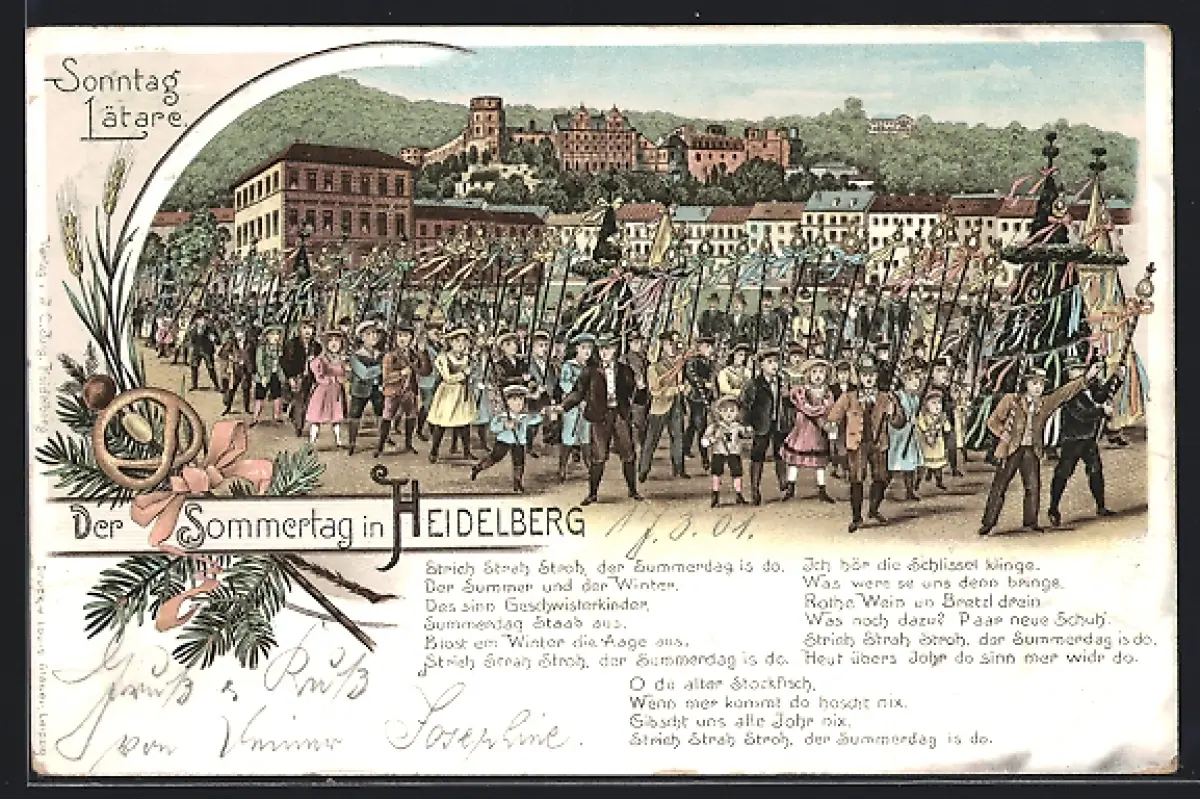 Sonntag
Lätare.
Der Sommertag in HEIDELBERG
17.3.01.
Strich Strah Stroh, der Summerdag is do.
Der Summer und der Winter,
Des sinn Geschwisterkinder,
Summerdag Staab aus,
Blost em Winter die Aage aus,
Strich Strah Stroh, der Summerdag is do.
Ich hör die Schlissel klinge.
Was were se uns denn bringe.
Rothe Wein un Bretzl drein
Was noch dazu? Paar neue Schuh'.
Strich Strah Stroh, der Summerdag is do.
Heut übers Johr do sinn mer widr do.
O du alter Stockfisch,
Wenn mer kummt do hoscht nix.
Gibscht uns alle Johr nix.
Strich Strah Stroh, der Summerdag is do.
Gruß & Kuß
von Josephine.
Heidelberg
Leipzig